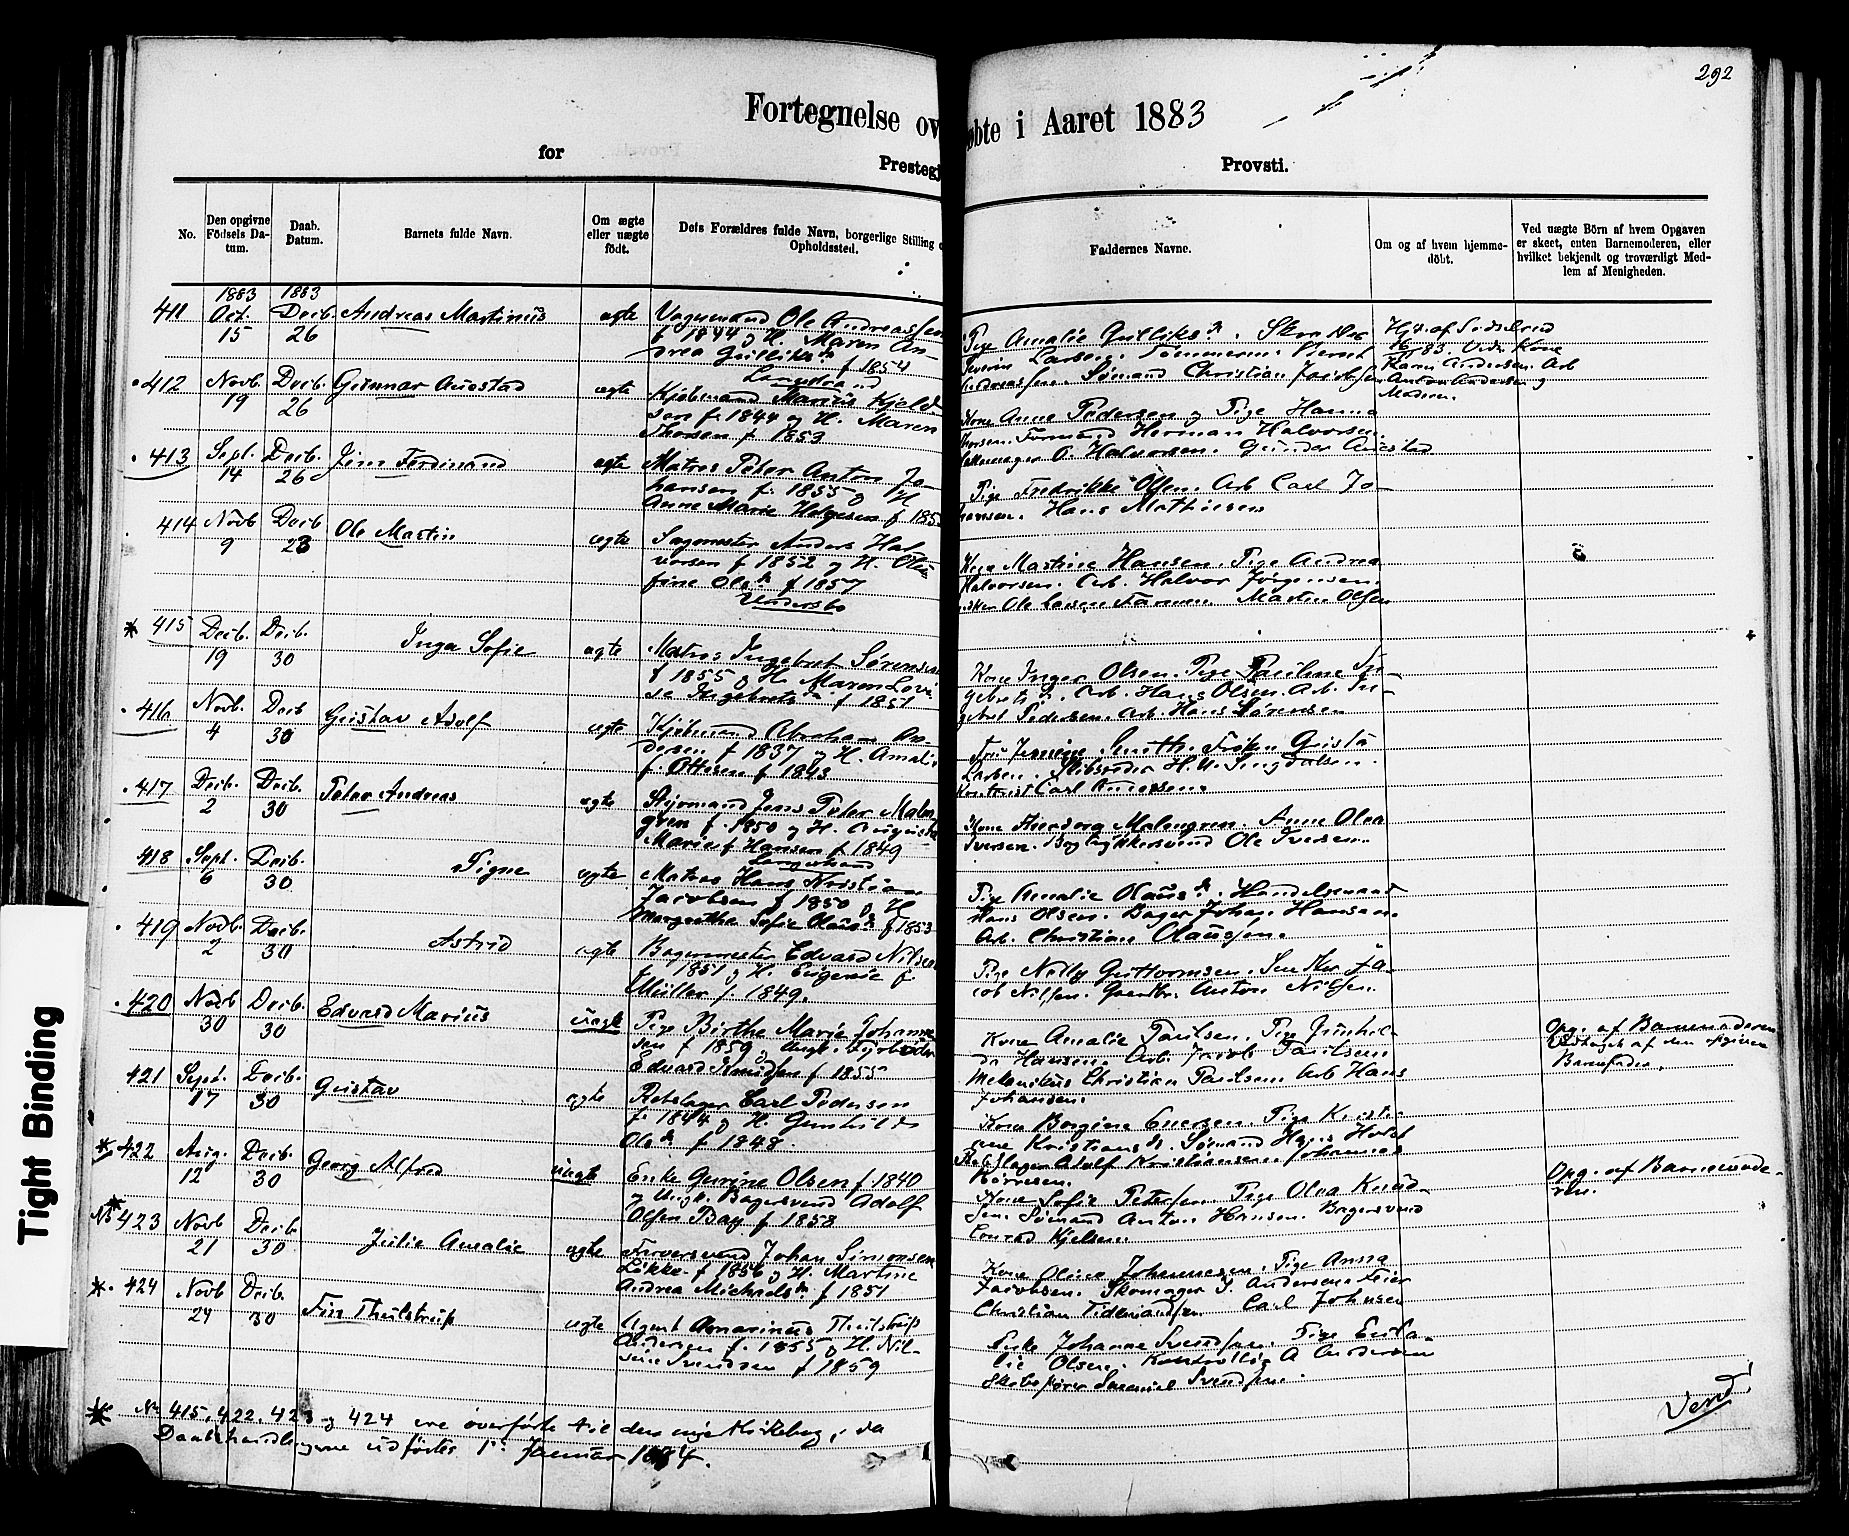 292
Fortegnelse ov øbte i Aaret 1883
for Prestegj Provsti.
No.
Den opgivne Födsels Datum.
Daab. Datum.
Barnets fulde Navn.
Om ægte eller uægte födt.
Dets Forældres fulde Navn, borgerlige Stilling o
Opholdssted.
Faddernes Navne.
Om og af hvem hjemmedöbt.
Ved uægte Börn af hvem Opgaven
er skeet, enten Barnemoderen, eller
hvilket bekjendt og troværdigt Medlem af Menigheden.
1883 1883
411 Oct. 15 Decb. 26 Andreas Martinus ægte
Ole Andreassen
f 1844 og H. Maren An-
drea Gulliksd
f 1854
Pige Amalie Gulliksd.
Severin Larsen. Tømmerm. Bernt
Andreassen. Sømand Christian Jacobsen
Kone
Karen Andersen. Arb
Anton Andersen og
Moderen.
412 Novb. 19 Decb. 26 Gunnar Auestad ægte
Langestrand
Kjøbmand Marius Kjeld
sen f. 1844 og H. Maren
Thorsen f. 1853
Kone Anne Pedersen og Pige Hanna
Thorsen. Formand Herman Halvorsen.
O. Halvorsen. Gunder Auestad
413 Sept. 14 Decb. 26 Jim Ferdinand ægte
Matros Peter Anton Jo-
hansen f. 1855 og H
Anne Marie Helgesen f 185
Pige Fredrikke Olsen. Arb Carl Jo-
hansen. Hans Mathiesen
414 Novb 9 Decb 23 Ole Martin ægte
Sagmester Anders Hal
vorsen f 1852 og H. Olu
fine Olsd f 1857
Undersbo
Kone Martine Hansen. Pige Andrea
Halvorsen. Arb. Halvor Jørgensen.
Ole Larsen Farmen. Martin Olsen
* 415 Decb. 19 Decb. 30 Inga Sofie ægte
Matros Ingebret Sørensen
f 1855 og H. Maren Lovi
se Ingebretsd f 1851
Kone Inger Olsen. Pige Pauline In-
gebretsd. Arb. Hans Olsen. Arb. In-
gebret Pedersen. Arb. Hans Sørensen
416 Novb. 4 Decb 30 Gustav Adolf ægte
Kjøbmand Abraham An
dersen f 1837 og H. Amali
f. Ottesen f 1843
Fru Jensine Smith. Frøken Gusta
Larsen. Skibsreder H. A. Syngdalsen.
Kontorist Carl Andersen.
417 Decb. 2 Decb. 30 Peter Andreas ægte
Styrmand Jens Peter Malm
gren f. 1850 og H. Augusta
Marie f Hansen f 1849
Kone Ameborg Malmgren. Anne Olea
Iversen. Bogtrykkersvend Ole Iversen.
418 Sept. 6 Decb. 30 Signe ægte
Langestrand
Matros Hans Kristian
Jacobsen f 1850 og H
Margrethe Sofie Olausd f 1853
Pige Amalie Olausd. Handelsmand
Hans Olsen. Bager Johan Hansen.
Arb. Christian Olaussen.
419 Novb. 2 Decb. 30 Astrid ægte
Bagermester Edvard Nilsen
f 1851 og H. Eugenie f
Müller f. 1849.
Pige Nelly Guttormsen. Ja-
cob Nilsen. Anton Nilsen.
420 Novb 30 Decb. 30 Edvard Marius uægte
Pige Birthe Marie Johanne
sen f 1859. Ungk. Fyrbøder
Edvard Knudsen f 1855
Kone Amalie Paulsen. Pige Gunhil-
da Hansen. Arb Jacob Paulsen
Mekanikus Christian Paulsen. Arb Hans
Johansen.
Opg. af Barnemoderen
Vedtaget af den opgivne
Barnefader.
421 Sept. 17 Decb. 30 Gustav ægte
Rebslager Carl Pedersen
f. 1844 og H. Gunhild
Olsd f 1848.
Kone Borgine Eversen. Pige Kristi-
ane Kristiansd. Sømand Hans Holst
Rebslager Adolf Kristiansen. Johannes
Børresen.
* 422 Aug. 12 Decb. 30 Georg Alfred uægte
Enke Gurine Olsen f 1840
og Ungk. Bagersvend Adolf
Olsen Bay f 1858
Kone Sofie Petersen. Pige Olea Knud-
sen. Sømand Anton Hansen. Bagersvend
Conrad Kjelsen.
Opg. af Barnemode-
ren.
* 423 Novb 21 Decb. 30 Julie Amalie ægte
Farversvend Johan Simonsen
Løkke f 1856 og H. Martine
Andrea Michaelsd f 1851
Kone Oline Johannesen. Pige Anna
Jacobsen. Skomager S. Andersen. Feier
Christian Tidemandsen. Carl Johnsen
* 424 Novb 24 Decb. 30 Fin Thulstrup ægte
Agent Amarinus Thulstrup
Andersen f. 1855 og H. Nil-
sine Svendsen f 1859
Enke Johanne Svendsen. Pige Eula-
lie Olsen. A Andersen
Skibsfører Samuel Svendsen.
* No 415, 422, 423 og 424 ere overførte til den nye Kirkebog, da
Daabshandlingerne udførtes 1ste Januar 1884.
Vend
Tight Binding